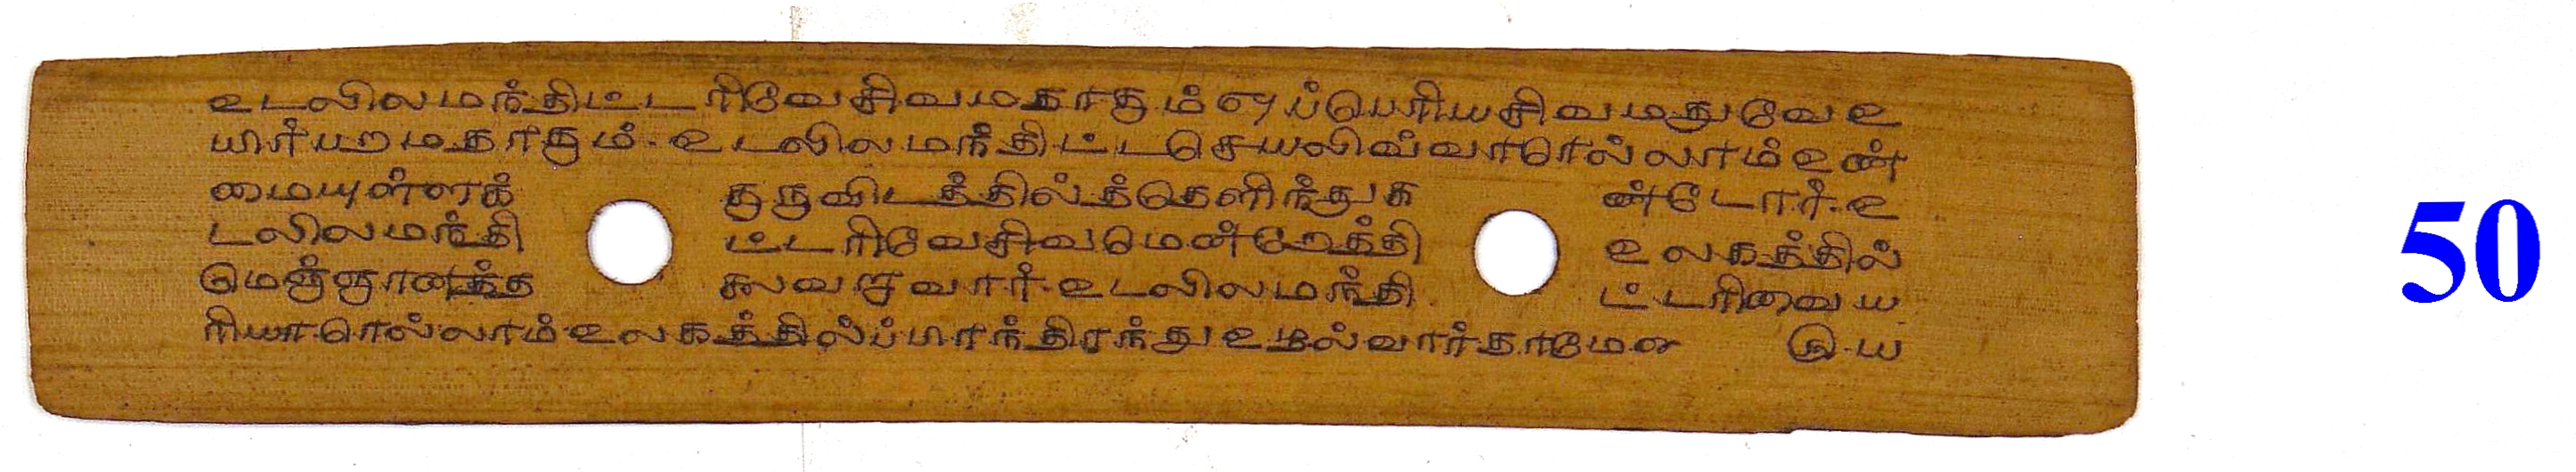 உடலிலமந்திட்டரிவேசிவமதாகும் எப்பெரியசிவமதுவேஉ
யிர்பரமதாகும். உடலிலமந்திட்டசெயலிவ்வாரொல்லாம்உண்
மையுள்ளக் குருவிடத்தில்த்தெளிந்துக ண்டோர். உ
டலிலமந்தி ட்டரிவேசிவமென்றேத்தி உலகத்தில்
மெஞ்ஞானத்த கலவருவார். உடலிலமந்தி ட்டரிவைய
ரியாரொல்லாம்உலகத்தில்ப்பிரந்திரந்துஉழல்வார்தாமே
50